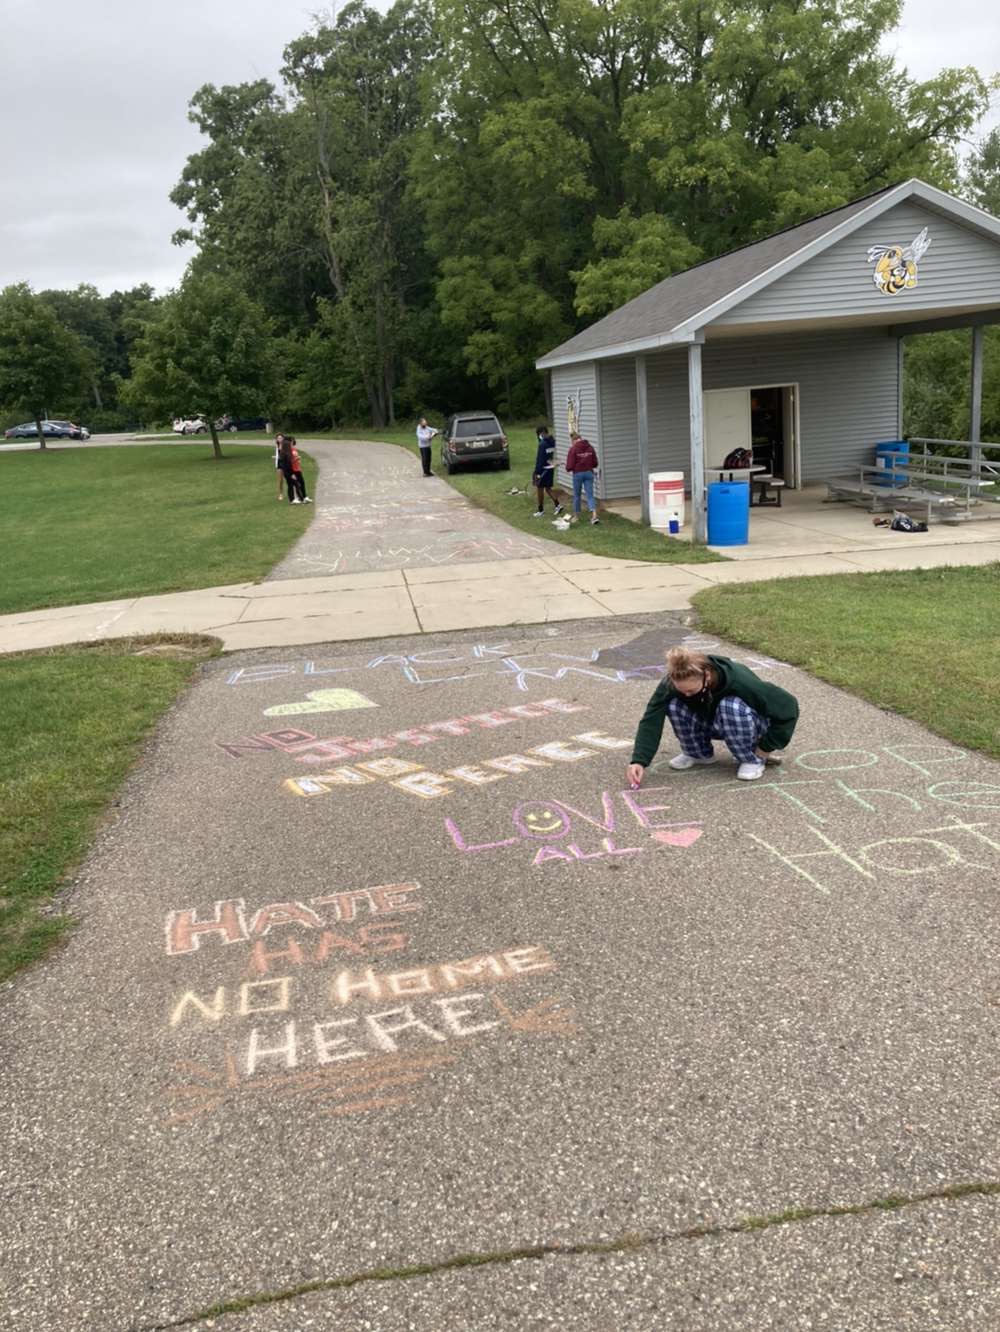 BLACK LIVES
NO JUSTICE
NO PEACE
LOVE
ALL
STOP
The
Hate
HATE
HAS
NO HOME
HERE